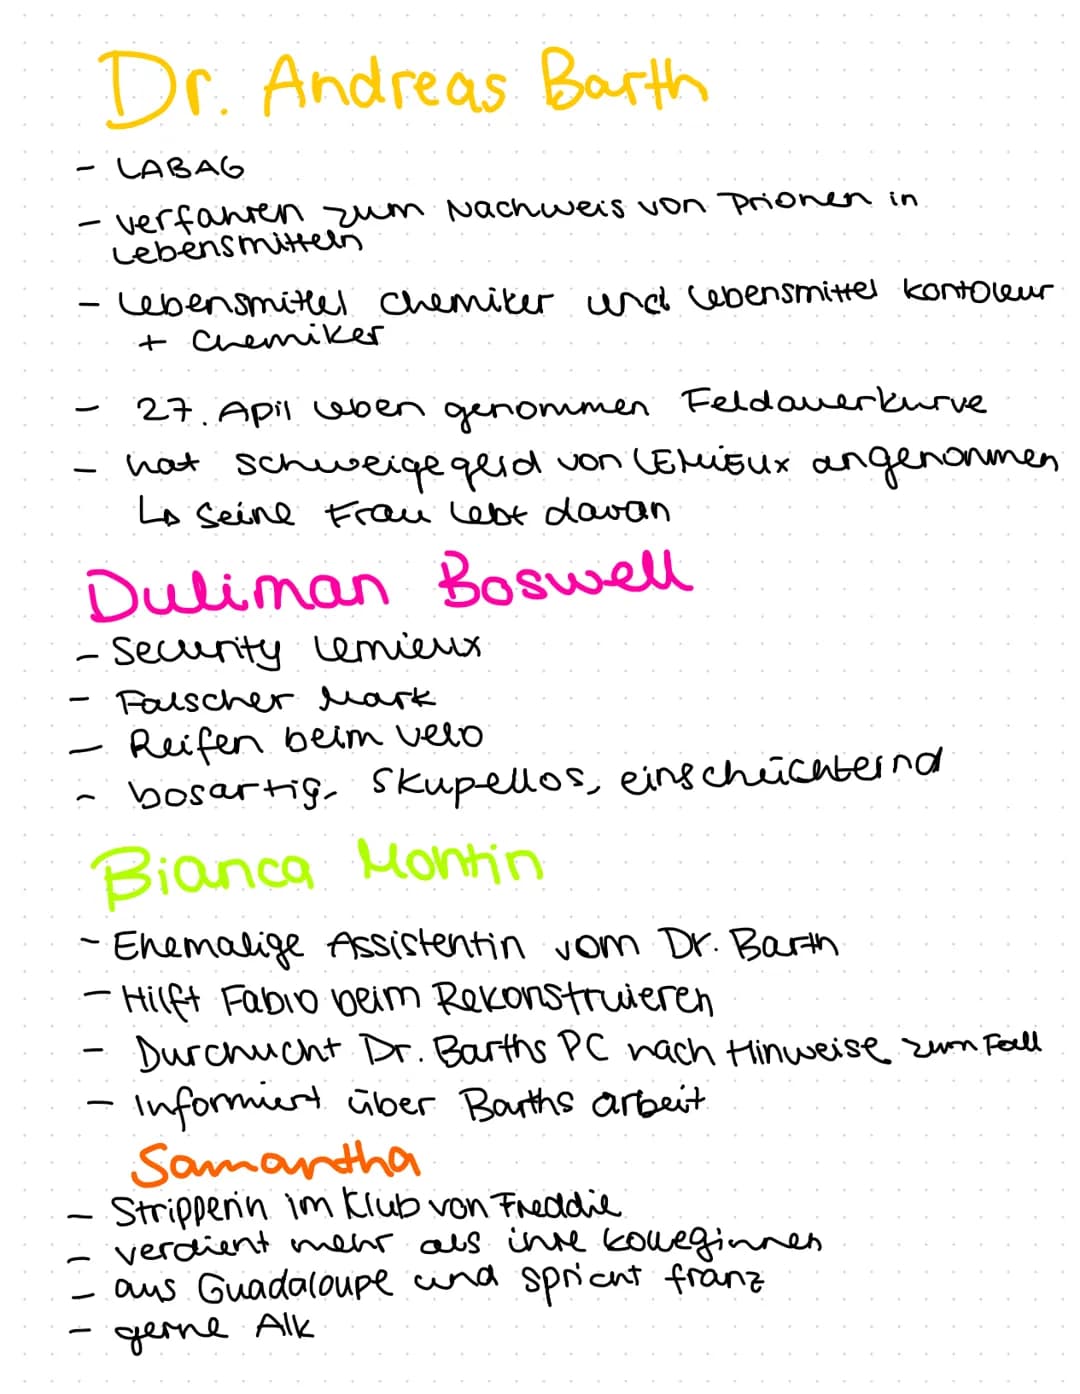 Dr. Andreas Barth
- LABAG
- verfahren zum Nachweis von Prionen in
Lebensmitteln
- Lebensmittel chemiker und Lebensmittel kontoleur
+ Chemiker
- 27. Apil Leben genommen Feldauerkurve
- hat schweigegeld von LEMIEUX angenommen
↳ seine Frau lebt davan
Duliman Boswell
- Security Lemieux
- Falscher Mark
- Reifen beim velo
- bosartig, skupellos, einschüchternd
Bianca Montin
- Ehemalige Assistentin vom Dr. Barth
- Hilft Fabio beim Rekonstruieren
- Durchucht Dr. Barths PC nach Hinweise zum Fall
- Informiert über Barths arbeit
Samantha
- Stripperin im Klub von Freddie
- verdient mehr als ihre kolleginnen
- aus Guadaloupe und spricht franz
- gerne Alk